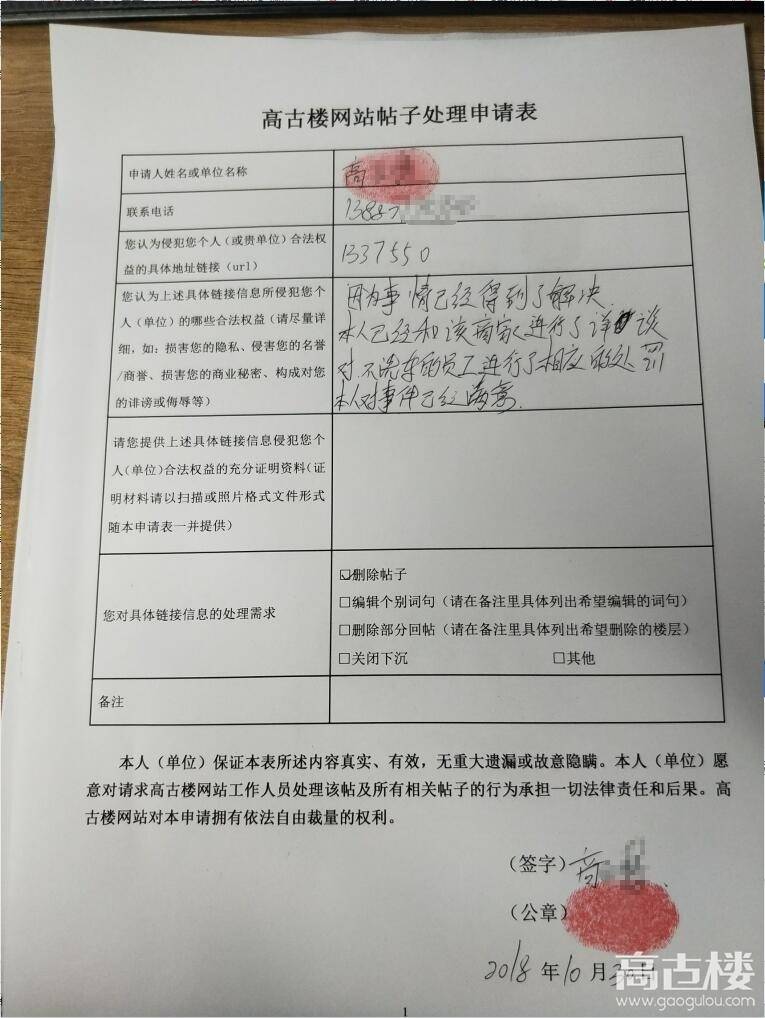 高古楼网站帖子处理申请表
申请人姓名或单位名称
高
联系电话
您认为侵犯您个人（或贵单位）合法权
益的具体地址链接（url）
1337550
您认为上述具体链接信息所侵犯您个
人（单位）的哪些合法权益（请尽量详
细，如：损害您的隐私、侵害您的名誉
/商誉、损害您的商业秘密、构成对您
的诽谤或侮辱等）
因为事情已经得到了解决
本人已经和该商家进行了详谈
对不洗车的员工进行了相应的处罚
本人对事件已经满意.
请您提供上述具体链接信息侵犯您个
人（单位）合法权益的充分证明资料（证
明材料请以扫描或照片格式文件形式
随本申请表一并提供）
您对具体链接信息的处理需求
☑删除帖子
□编辑个别词句（请在备注里具体列出希望编辑的词句）
□删除部分回帖（请在备注里具体列出希望删除的楼层）
□关闭下沉 □其他
备注
本人（单位）保证本表所述内容真实、有效，无重大遗漏或故意隐瞒。本人（单位）愿
意对请求高古楼网站工作人员处理该帖及所有相关帖子的行为承担一切法律责任和后果。高
古楼网站对本申请拥有依法自由裁量的权利。
（签字）高
（公章）
2018 年 10 月 日
1
高古楼
www.gaogulou.com